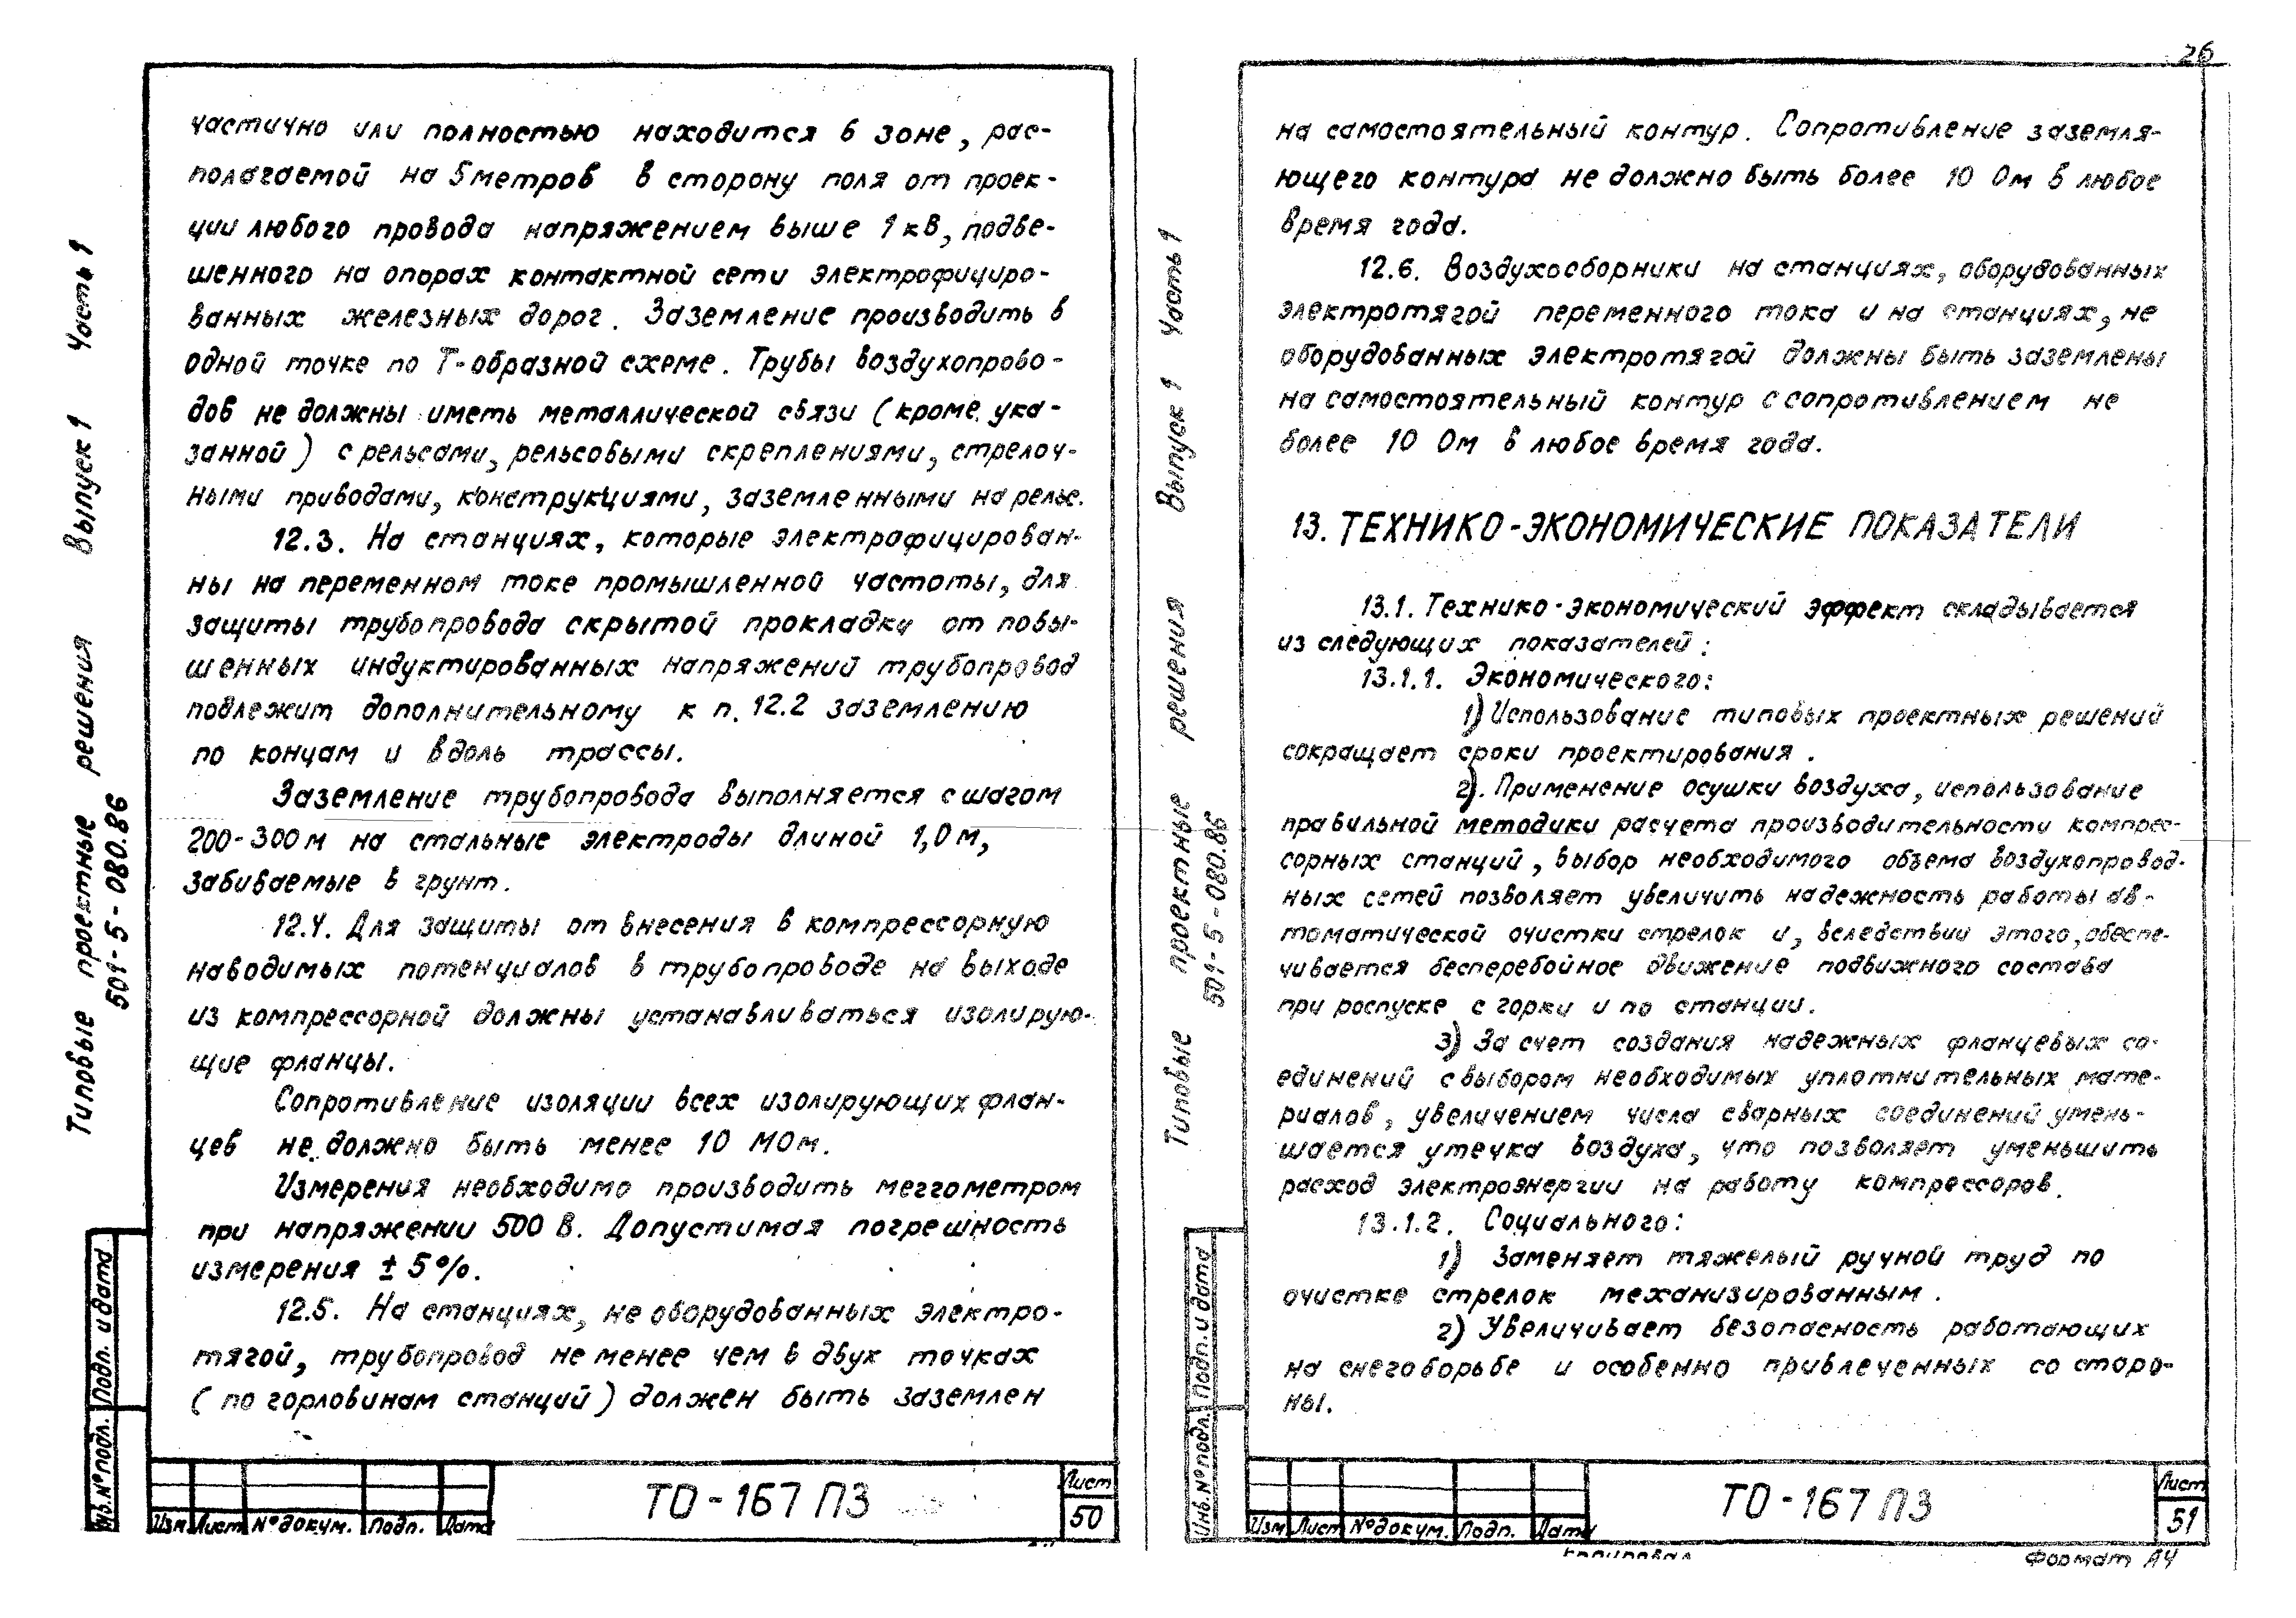 частично или полностью находится в зоне, рас-
полагаемой на 5 метров в сторону поля от проек-
ции любого провода напряжением выше 1 кВ, подве-
шенного на опорах контактной сети электрофициро-
ванных железных дорог. Заземление производить в
одной точке по Т-образной схеме. Трубы воздухопрово-
дов не должны иметь металлической связи (кроме ука-
занной) с рельсами, рельсовыми скреплениями, стрелоч-
ными приводами, конструкциями, заземленными на рельс.
12.3. На станциях, которые электрафицирован-
ны на переменном токе промышленной частоты, для
защиты трубопровода скрытой прокладки от повы-
шенных индуктированных напряжений трубопровод
подлежит дополнительному к п. 12.2 заземлению
по концам и вдоль трассы.
Заземление трубопровода выполняется с шагом
200-300 м на стальные электроды длиной 1,0 м,
забиваемые в грунт.
12.4. Для защиты от внесения в компрессорную
наводимых потенциалов в трубопроводе на выходе
из компрессорной должны устанавливаться изолирую-
щие фланцы.
Сопротивление изоляции всех изолирующих флан-
цев не должно быть менее 10 МОм.
Измерения необходимо производить меггометром
при напряжении 500 В. Допустимая погрешность
измерения ± 5%.
12.5. На станциях, не оборудованных электро-
тягой, трубопровод не менее чем в двух точках
(по горловинам станций) должен быть заземлен
Типовые проектные решения Выпуск 1 Часть 1
501-5-080.86
Подп. и дата
Инв. № подл.
Изм Лист № докум. Подп. Дата
ТО-167 ПЗ
Лист
50
26
на самостоятельный контур. Сопротивление заземля-
ющего контура не должно быть более 10 Ом в любое
время года.
12.6. Воздухосборники на станциях, оборудованных
электротягой переменного тока и на станциях, не
оборудованных электротягой должны быть заземлены
на самостоятельный контур с сопротивлением не
более 10 Ом в любое время года.
13. ТЕХНИКО-ЭКОНОМИЧЕСКИЕ ПОКАЗАТЕЛИ
13.1. Технико-экономический эффект складывается
из следующих показателей:
13.1.1. Экономического:
1) Использование типовых проектных решений
сокращает сроки проектирования.
2). Применение осушки воздуха, использование
правильной методики расчета производительности компрес-
сорных станций, выбор необходимого объема воздухопровод-
ных сетей позволяет увеличить надежность работы ав-
томатической очистки стрелок и, вследствии этого, обеспе-
чивается бесперебойное движение подвижного состава
при роспуске с горки и по станции.
3) За счет создания надежных фланцевых со-
единений с выбором необходимых уплотнительных мате-
риалов, увеличением числа сварных соединений умень-
шается утечка воздуха, что позволяет уменьшить
расход электроэнергии на работу компрессоров.
13.1.2. Социального:
1) Заменяет тяжелый ручной труд по
очистке стрелок механизированным.
2) Увеличивает безопасность работающих
на снегоборьбе и особенно привлеченных со сторо-
ны.
Типовые проектные решения Выпуск 1 Часть 1
501-5-080.86
Подп. и дата
Инв. № подл.
Изм Лист № докум. Подп. Дата
ТО-167 ПЗ
Лист
51
Копировал
Формат А4